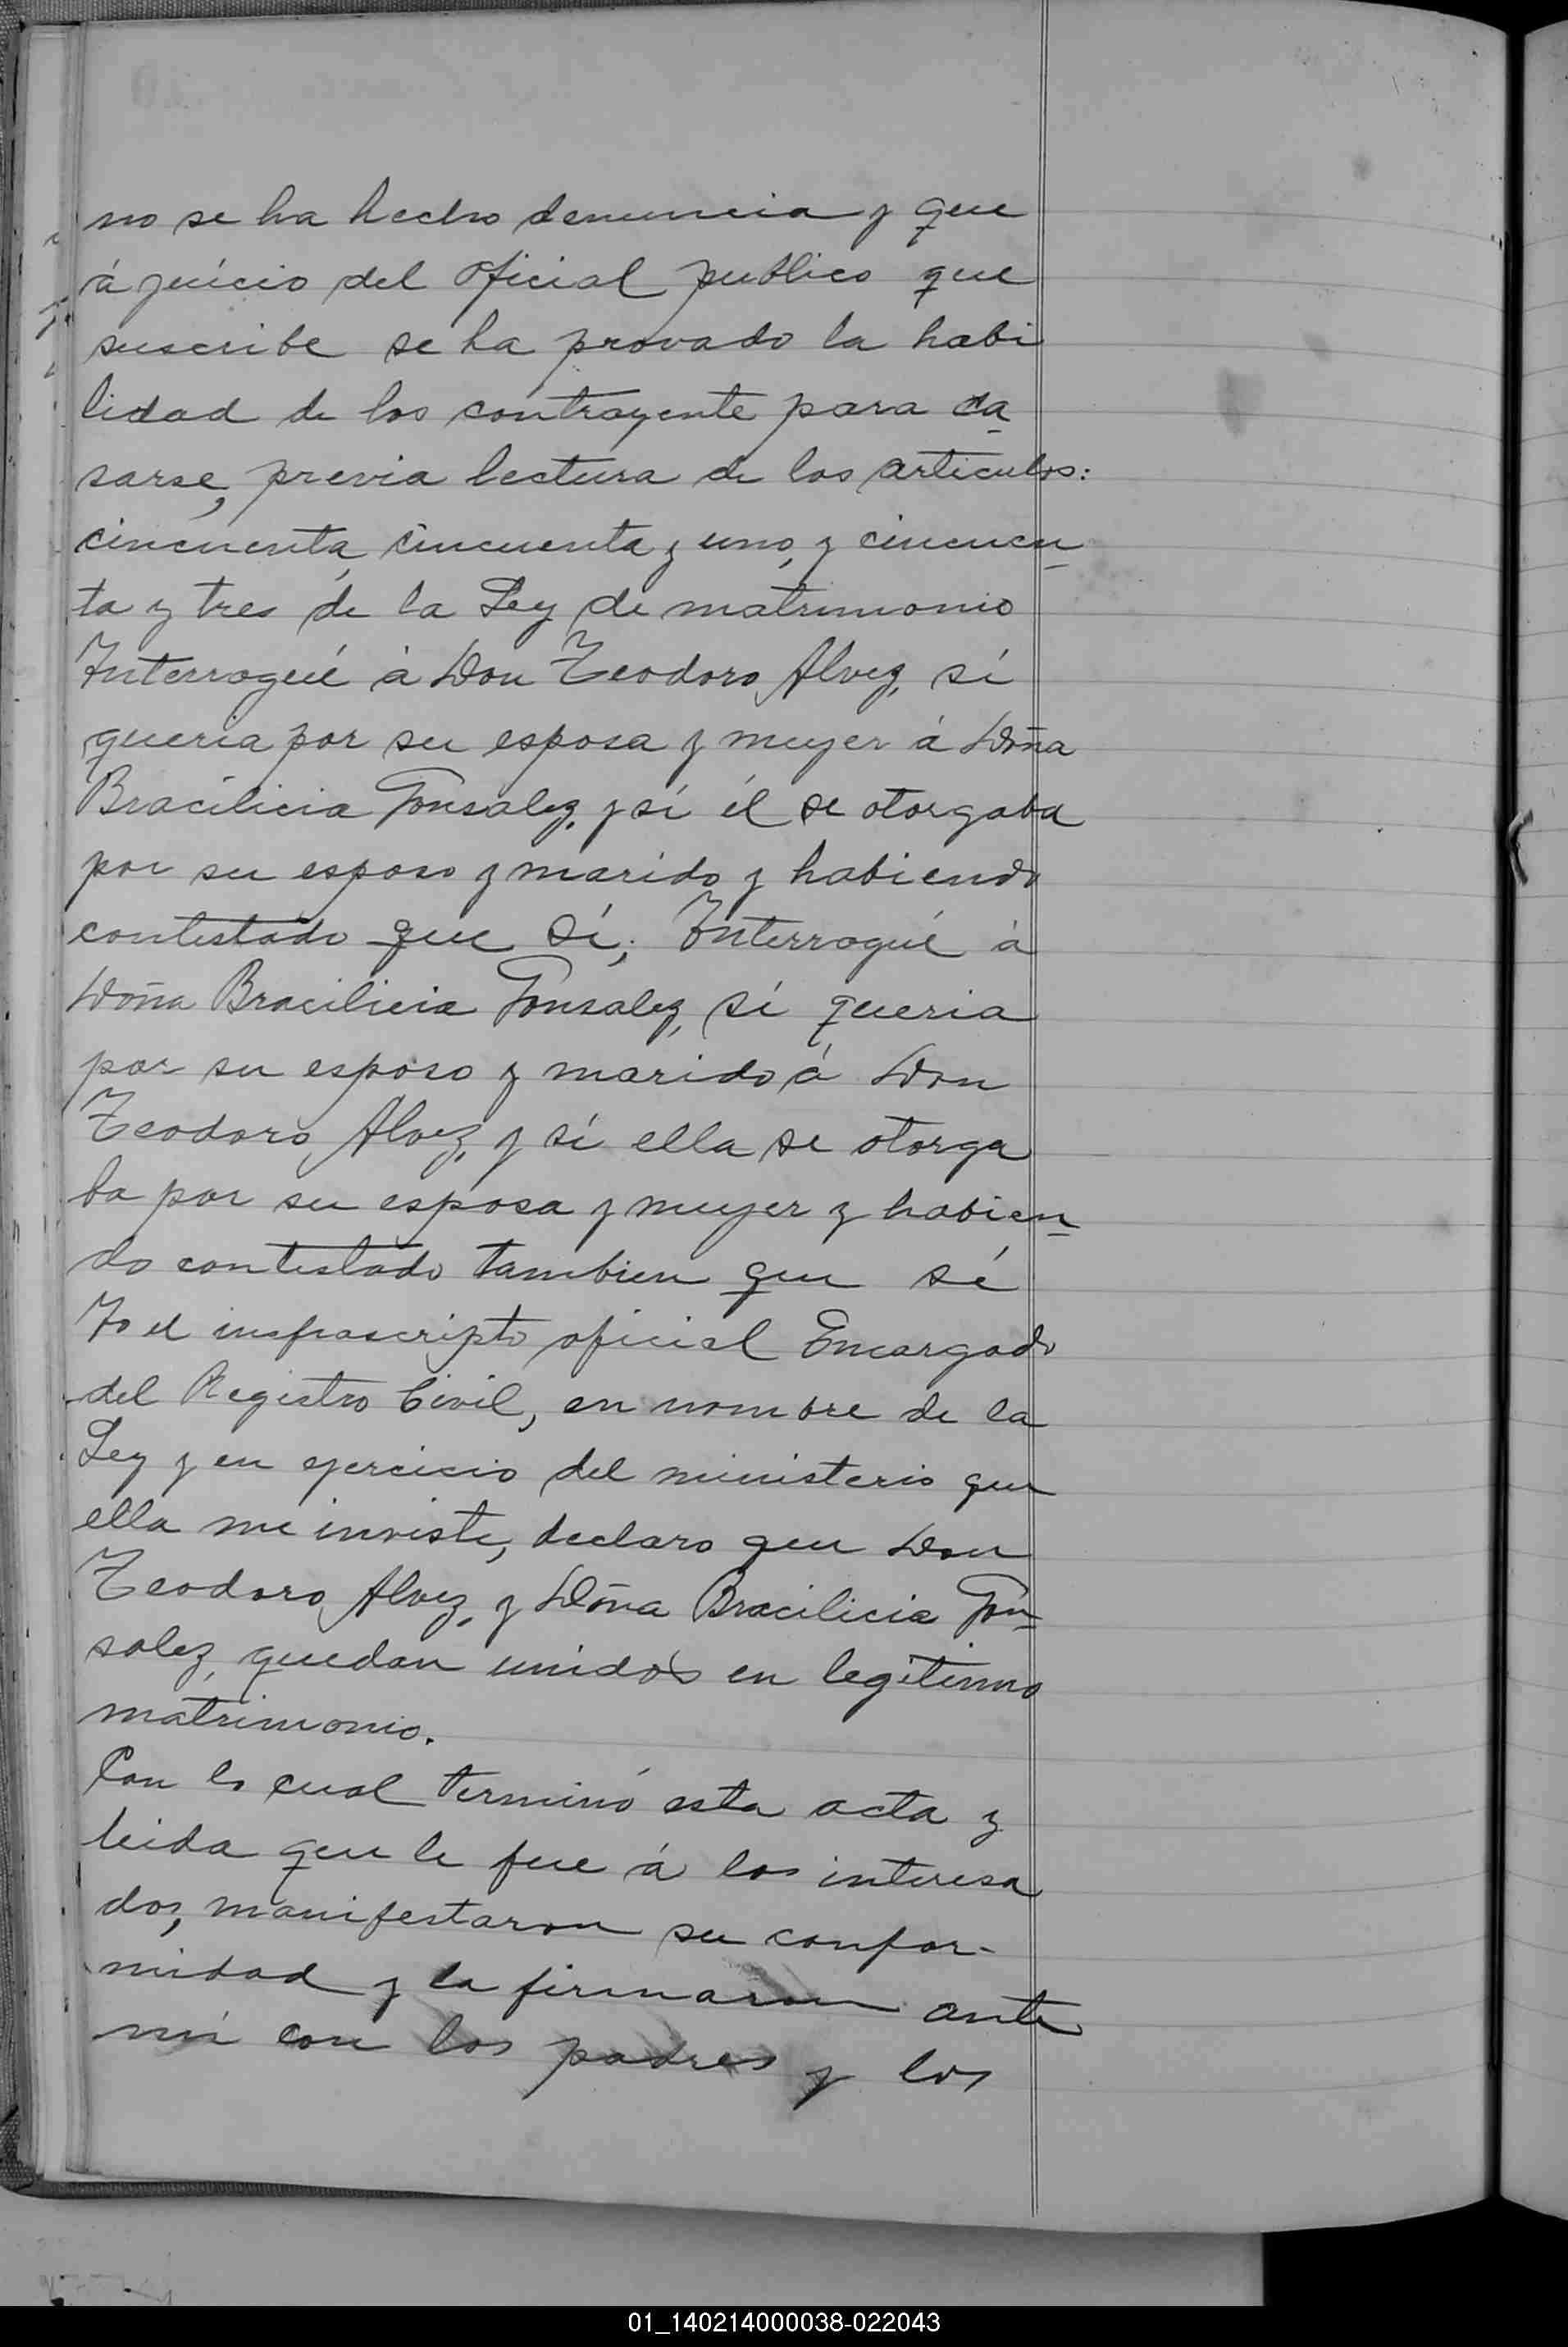 no se ha hecho denuncia y que
á juicio del oficial publico que
suscribe se ha provado la habi
lidad de los contrayente para ca
sarse, previa lectura de los articulos:
cincuenta, cincuenta y uno, y cincuen
ta y tres de la Ley de matrimonio
Interrogué á Don Teodoro Alvez, sí
queria por su esposa y mujer á Doña
Bracilicia Gonsalez, y sí él se otorgaba
por su esposo y marido y habiendo
contestado que sí; Interrogué á
Doña Bracilicia Gonsalez, sí queria
por su esposo y marido á Don
Teodoro Alvez, y sí ella se otorga
ba por su esposa y mujer y habien
do contestado tambien que sí
Yo el insfrascripto oficial Encargado
del Registro Civil, en nombre de la
Ley y en ejercicio del ministerio que
ella me inviste, declaro que Don
Teodoro Alvez, y Doña Bracilicia Gon
salez, quedan unidos en legitimo
matrimonio.
Con lo cual terminó esta acta y
leida que le fue á los interesa
dos, manifestaron su confor-
midad y la firmaron ante
mí con los padres y los
01_140214000038-022043